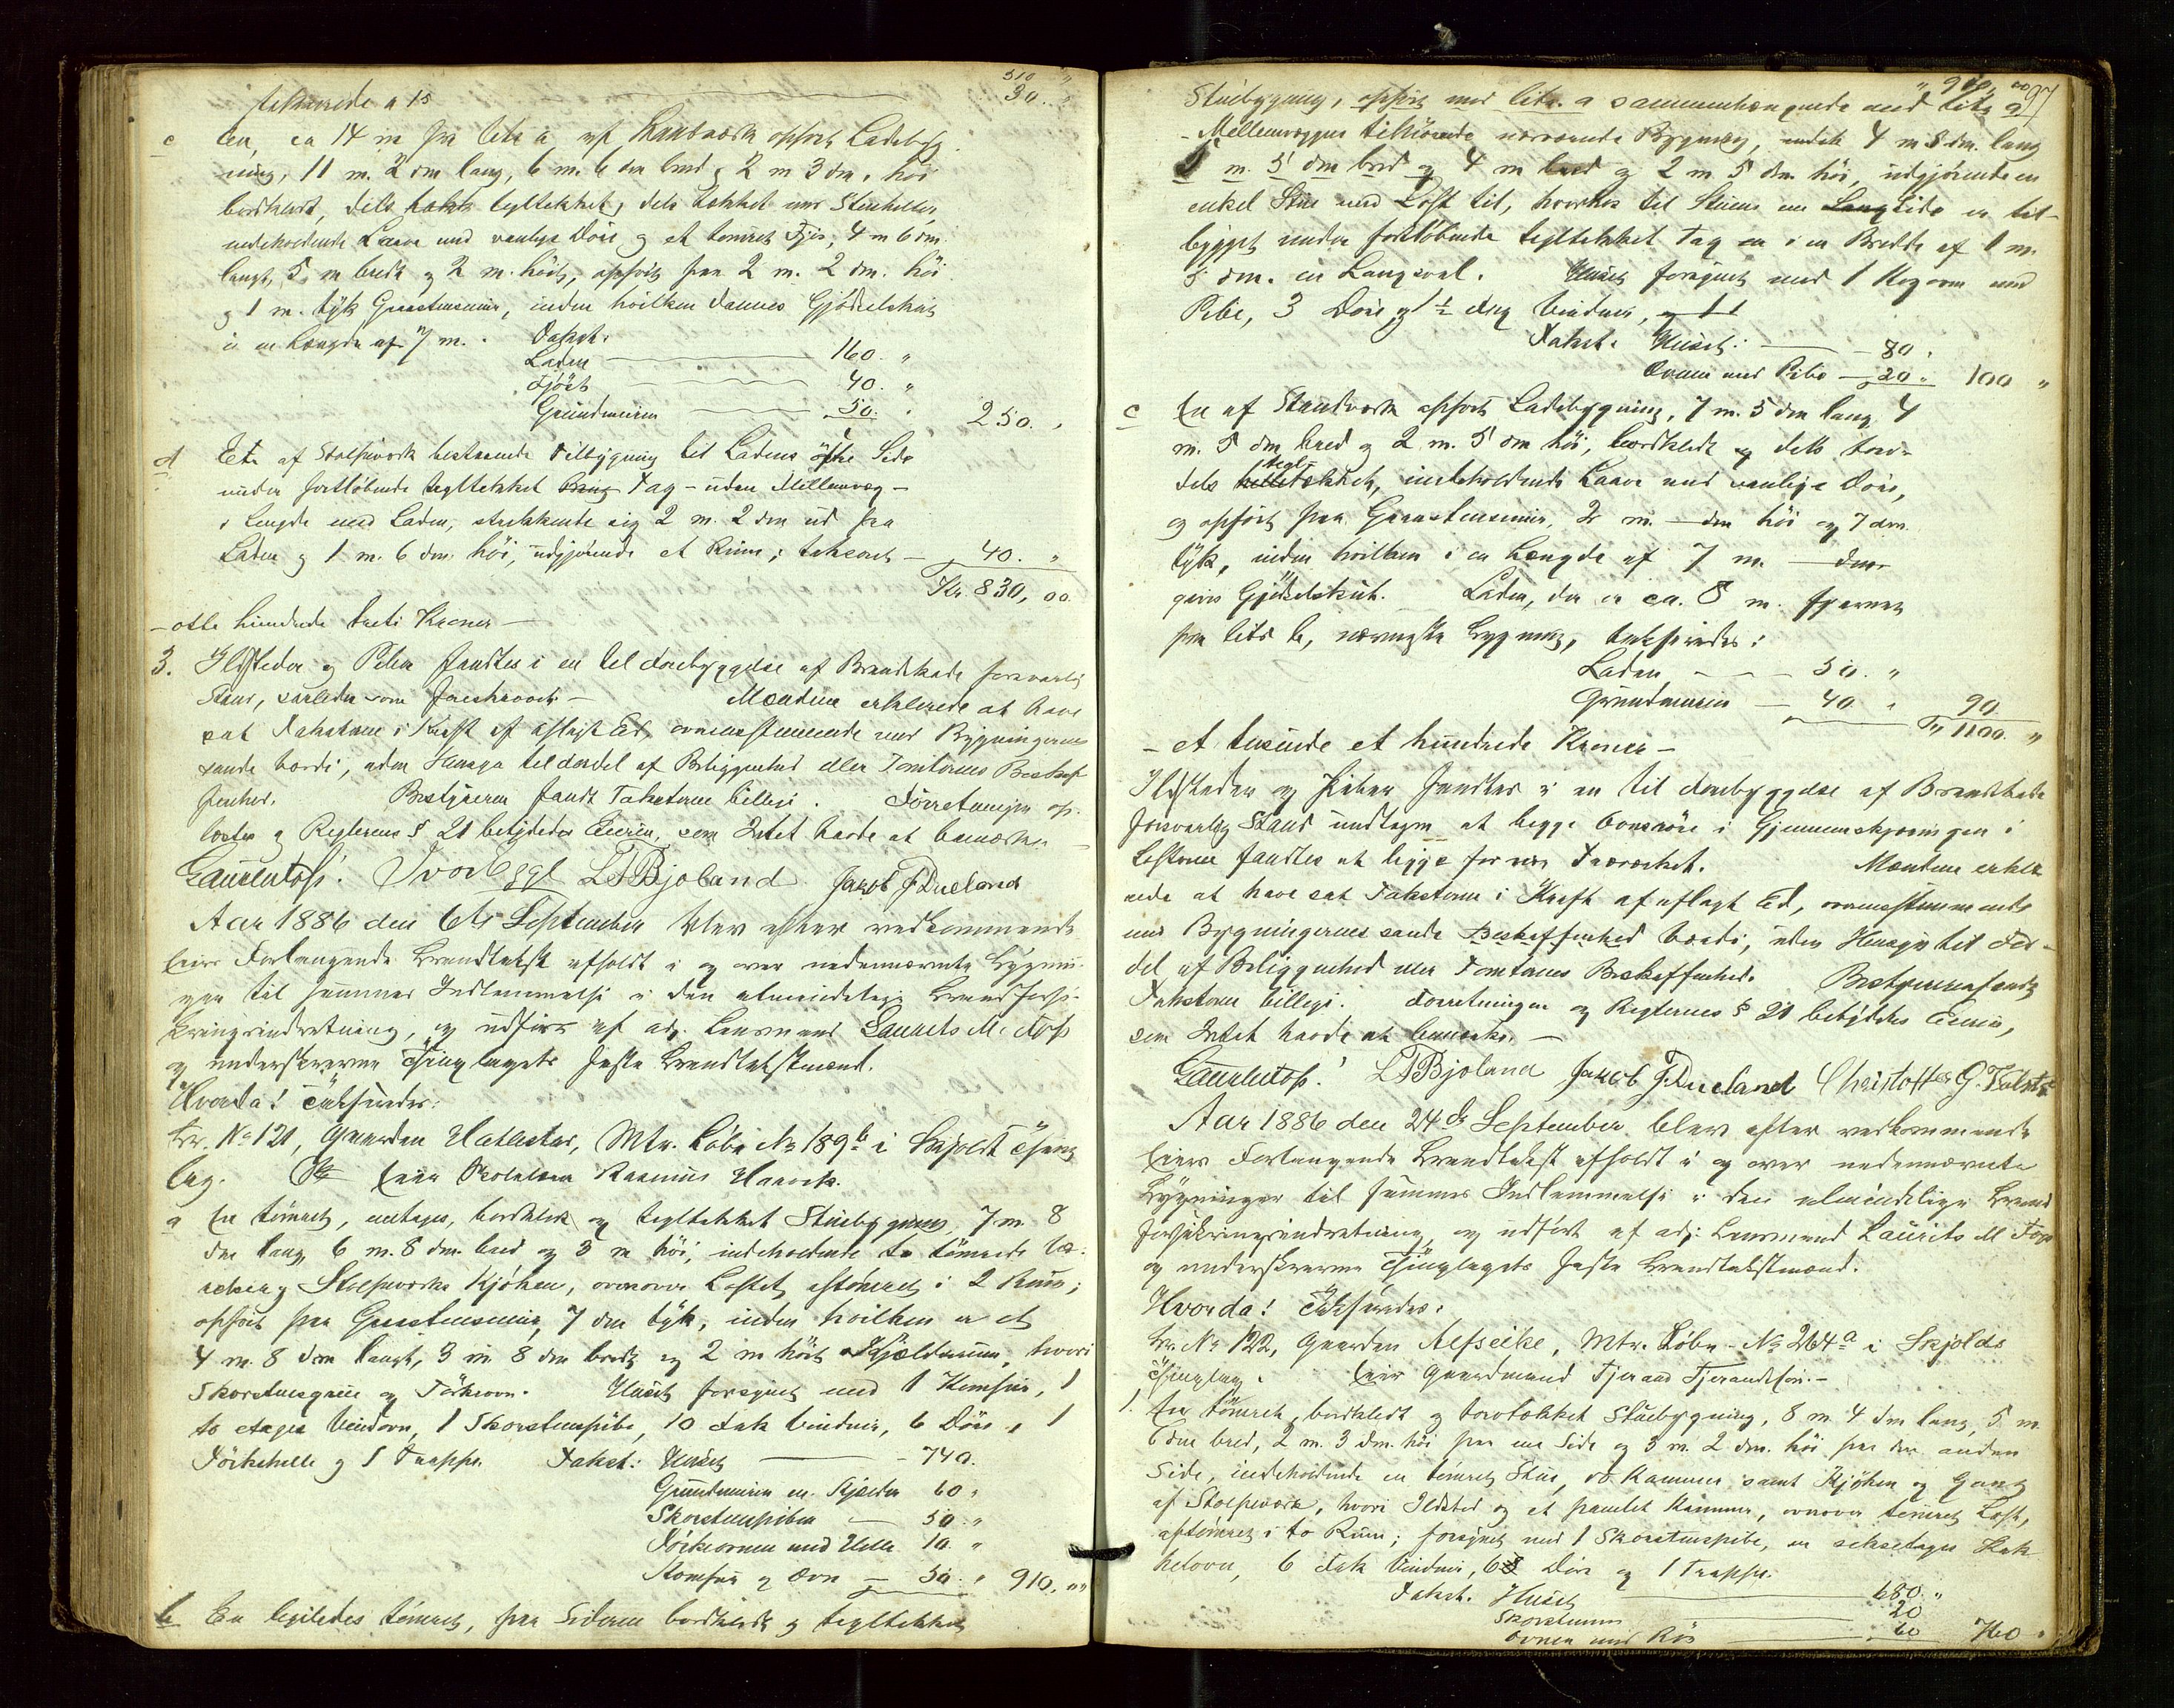 510 "
takserede a 15 30. "
c En, ca 14 m fra litr a af Standværk opført Ladebyg-
ning, 11 m. 2 dm lang, 6 m. 6 dm bred, 2 m 3 dm. høi
bordklædt, dels tegltækket, dels tækket med Stenheller,
indeholdende Laave med vanlige Døre og et tømret Fjøs, 4 m 6 dm
langt, 5 m bredt og 2 m. høit, opført paa 2 m. 2 dm. høi
og 1 m. tyk Graastensmur, inden hvilken dannes Gjødselskut
i en Længde af 7 m. Takst:
Laden 160. "
Fjøset 40. "
Grundmuren 50. " 250. "
d Et af Stolpeværk bestaaende Tilbygning til Ladens østre Side
under fortløbende tegltækket Tag - uden Mellemvæg -
i Længde med Laden, strækkende sig 2 m. 2 dm ud fra
Laden og 1 m. 6 dm. høi, udgjørende et Rum; takseret 40. "
Kr 830, 00.
- otte hundrede treti Kroner -
3. Ildsteder og Piber fandtes i en til Forebyggelse af Brandskade forsvarlig
Stand, saaledes som foreskrevet - Mændene erklærede at have
sat Taksterne i Kraft af aflagt Ed, overensstemmende med Bygningernes
sande Værdi, uden Hensyn til Fordel af Beliggenhed eller Tomternes Beskaf-
fenhed. Bestyreren fandt Taksterne billige. Forretningen op-
læstes og Reglernes § 21 betydedes Eieren, som Intet havde at bemærke. -
Lauritz Foss. Ivar Egge L T Bjoland Jakob J Dueland
Aar 1886 den 6te September blev efter vedkommende
Eiers Forlangende Brandtakst afholdt i og over nedennævnte Bygnin-
ger til sammes Indlemmelse i den almindelige Brandforsi-
kringsindretning, og udført af adj. Lensmand Laurits M. Foss
og underskrevne Thinglagets faste Brandtakstmænd.
Hvorda! Taksredes:
Br. No 121, Gaarden Hatlestad, Mtr. Løbe No 189b i Skjold Thing-
lag. Eier Skolelærer Rasmus Haavik.
a En tømret, entages, bordklædt og tegltækket Stuebygning, 7 m. 8
dm lang, 6 m. 8 dm. bred og 3 m høi, indeholdende to tømrede Væ-
relser og Stolpeværks Kjøken, ovenover Loftet aftømret i 2 Rum;
opført paa Graastensmur, 7 dm tyk, inden hvilken er et
4 m. 8 dm langt, 3 m 8 dm bredt og 2 m høit Kjælderrum, hvori
Skorstensgrue og Tørkeovn. Huset forsynet med 1 Komfur, 1
to etages Vindovn, 1 Skorstenspibe, 10 Fak Vinduer, 6 Døre, 1
Tørkehelle og 1 Trappe. Takst: Huset 740.
Grundmuren m. Kjælder 60 "
Skorstenspiben 50. "
Tørkeovnen med Helle 10. "
Komfur og Ovn 50. " 910. ""
b En ligeledes tømret, paa Siderne bordklædt og tegltækket
" 910, 00 97
Stuebygning, opført med litr. a sammenhængende med litr a
- Mellemvæggen tilhørende nærværende Bygning, 4 m 8 dm. lang
m. 5 dm bred og 4 m bred og 2 m 5 dm høi, udgjørende en
enkel Stue med Loft til, hvorhos til Stuens ene Langside er til-
bygget under fortløbende tegltækket Tag en i en Bredde af 1 m.
5 dm. en Langsval. Huset forsynet med 1 Kogeovn med
Pibe, 3 Døre og 1½ Fag Vinduer,
Takst: Huset: 80 "
Ovnen med Pibe 20 " 100 "
c En af Standværk opført Ladebygning, 7 m. 5 dm lang, 4
m. 5 dm bred og 2 m. 5 dm høi, bordklædt og dels torv-
dels tegl-tækket, indeholdende Laave med vanlige Døre,
og opført paa Graastensmur, 2 m. - dm høi og 7 dm
tyk, inden hvilken i en Længde af 7 m. - dm
gives Gjødselskut. Laden, der er ca. 8 m. fjernet
fra litr b, nærmeste Bygning, takseredes:
Laden 50. "
Grundmuren 40 " 90
Kr 1100. "
- et tusinde et hundrede Kroner -
Ildsteder og Piber fandtes i en til Forebyggelse af Brandskade
forsvarlig Stand undtagen at begge Ovnsrøre i Gjennemskjæringen i
Lofterne fandtes at ligge for nær Træværket. Mændene erklæ-
rede at have sat Taksterne i Kraft af aflagt Ed, overensstemmende
med Bygningernes sande Beskaffenhed Værdi, uden Hensyn til For-
del af Beliggenhed eller Tomternes Beskaffenhed. Bestyreren fandt
Taksterne billige. Forretningen og Reglernes § 21 betydedes Eieren,
som Intet havde at bemærke. -
Lauritz Foss. L T Bjoland Jakob J. Dueland Christoffer G.
Aar 1886 den 24de September blev efter vedkommende
Eiers Forlangende Brandtakst afholdt i og over nedennævnte
Bygninger til sammes Indlemmelse i den almindelige Brand-
forsikringsindretning, og udført af adj: Lensmand Laurits M Foss
og underskrevne Thinglagets faste Brandtakstmænd.
Hvorda! Taksredes:
Br. No 122, Gaarden Alfseike, Mtr. Løbe-No 264a i Skjolds
Thinglag. Eier Gaardmand Tjeraand Tjerandsen. -
1. En tømret, bordklædt og torvtækket Stuebygning, 8 m. 4 dm lang, 5 m.
6 dm bred, 2 m. 3 dm. høi paa ene Side og 3 m. 2 dm. høi paa den anden
Side, indeholdende en tømret Stue, do. Kammer samt Kjøken og Gang
af Stolpeværk, hvori Ildsted og et panelet Kammer, ovenover tømret Loft,
aftømret i to Rum; forsynet med 1 Skorstenspibe, en seksetages Kak-
kelovn, 6 Fak Vinduer, 6 Døre og 1 Trappe.
Takst. Huset 680. "
Skorstenen 20
Ovnen med Rør 60 760 "